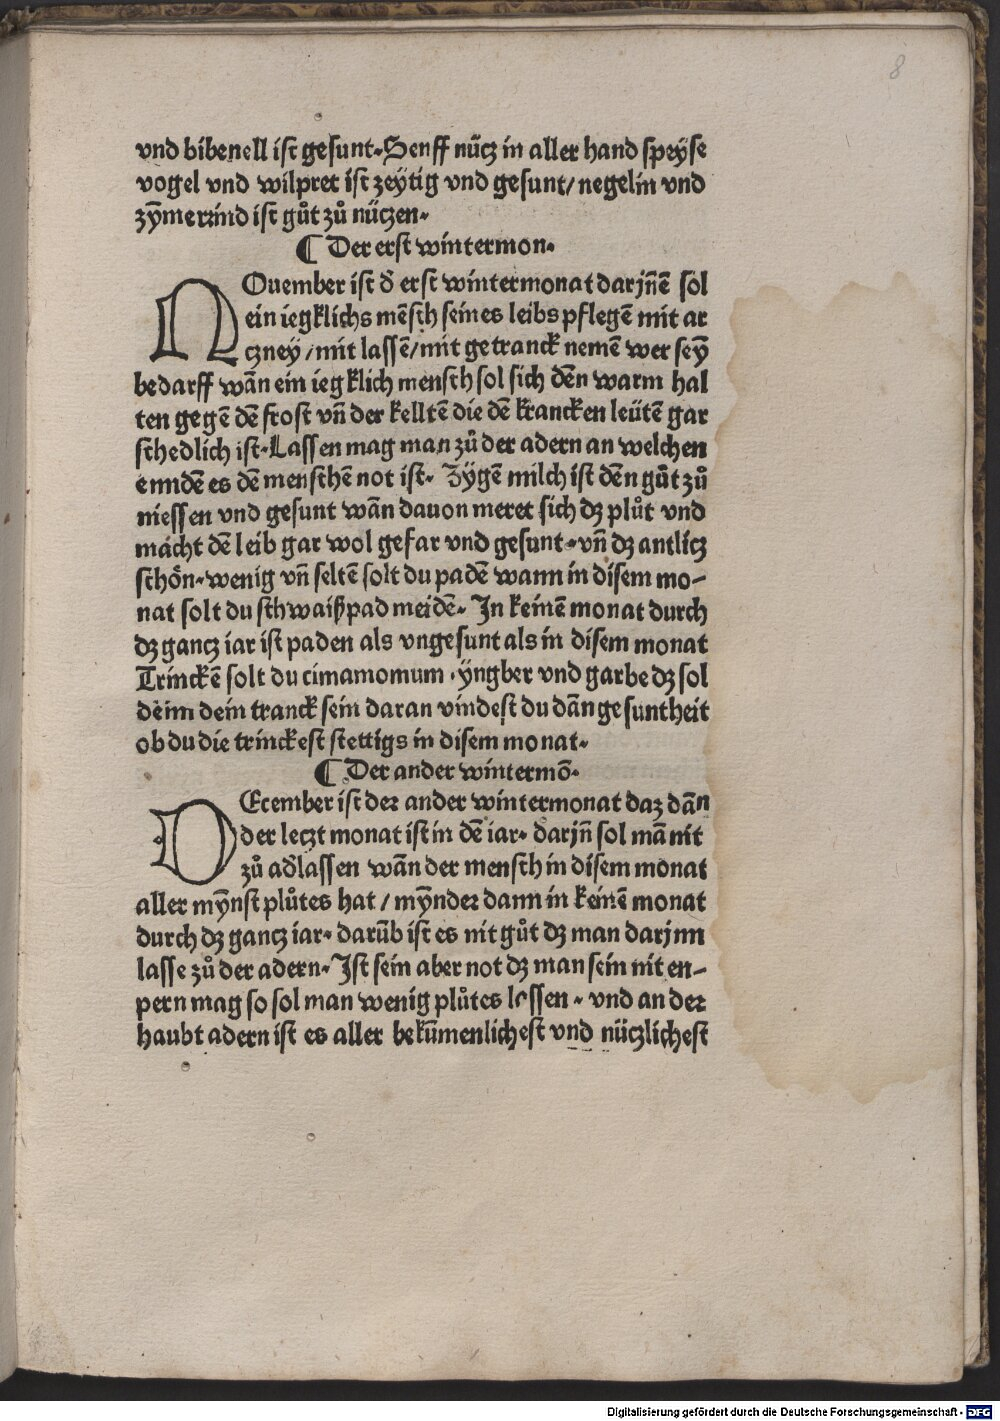 8
vnd bibenell ist gesunt. Senff nücz in aller hand speyse
vogel vnd wilpret ist zeÿtig vnd gesunt/ negelin vnd
zȳmerrind ist gůt zů nüczen.
¶ Der erst wintermon.
NOuember ist đ erst wintermonat darjn̄ē sol
ein iegklichs mēsch seines leibs pflegē mit ar
czney/ mit lassē/ mit getranck nemē wer seӯ
bedarff wān ein iegklich mensch sol sich dēn warm hal
ten gegē dē frost vn̄ der keltē die dē krancken leütē gar
schedlich ist. Lassen mag man zů der adern an welchen
enndē es dē menschē not ist. Zÿgē milch ist dēn gůt zů
niessen vnd gesunt wān dauon meret sich dz plůt vnd
macht dē leib gar wol gefar vnd gesunt. vn̄ dz antlicz
schön. wenig vn̄ seltē solt du padē wann in disem mo-
nat solt du schwaißpad meidē. In keinē monat durch
dz gancz iar ist paden als vngesunt als in disem monat
Trinckē solt du cimamomum. ÿngber vnd garbe dz sol
dēim dein tranck sein daran vindest du dān gesuntheit
ob du die trinckest stettigs in disem monat.
¶ Der ander wintermō.
DEcember ist der ander wintermonat daz dān
der leczt monat ist in dē iar. darjn̄ sol mā nit
zů ađlassen wān der mensch in disem monat
aller mӯnst plůtes hat/ mӯnder dann in keinē monat
durch dz gancz iar. darūb ist es nit gůt dz man darjnn
lasse zů der adern. Ist sein aber not dz man sein nit en-
pern mag so sol man wenig plůtes lossen. vnd an der
haubt adern ist es aller bekūmenlichest vnd nüczlichest
Digitalisierung gefördert durch die Deutsche Forschungsgemeinschaft - DFG